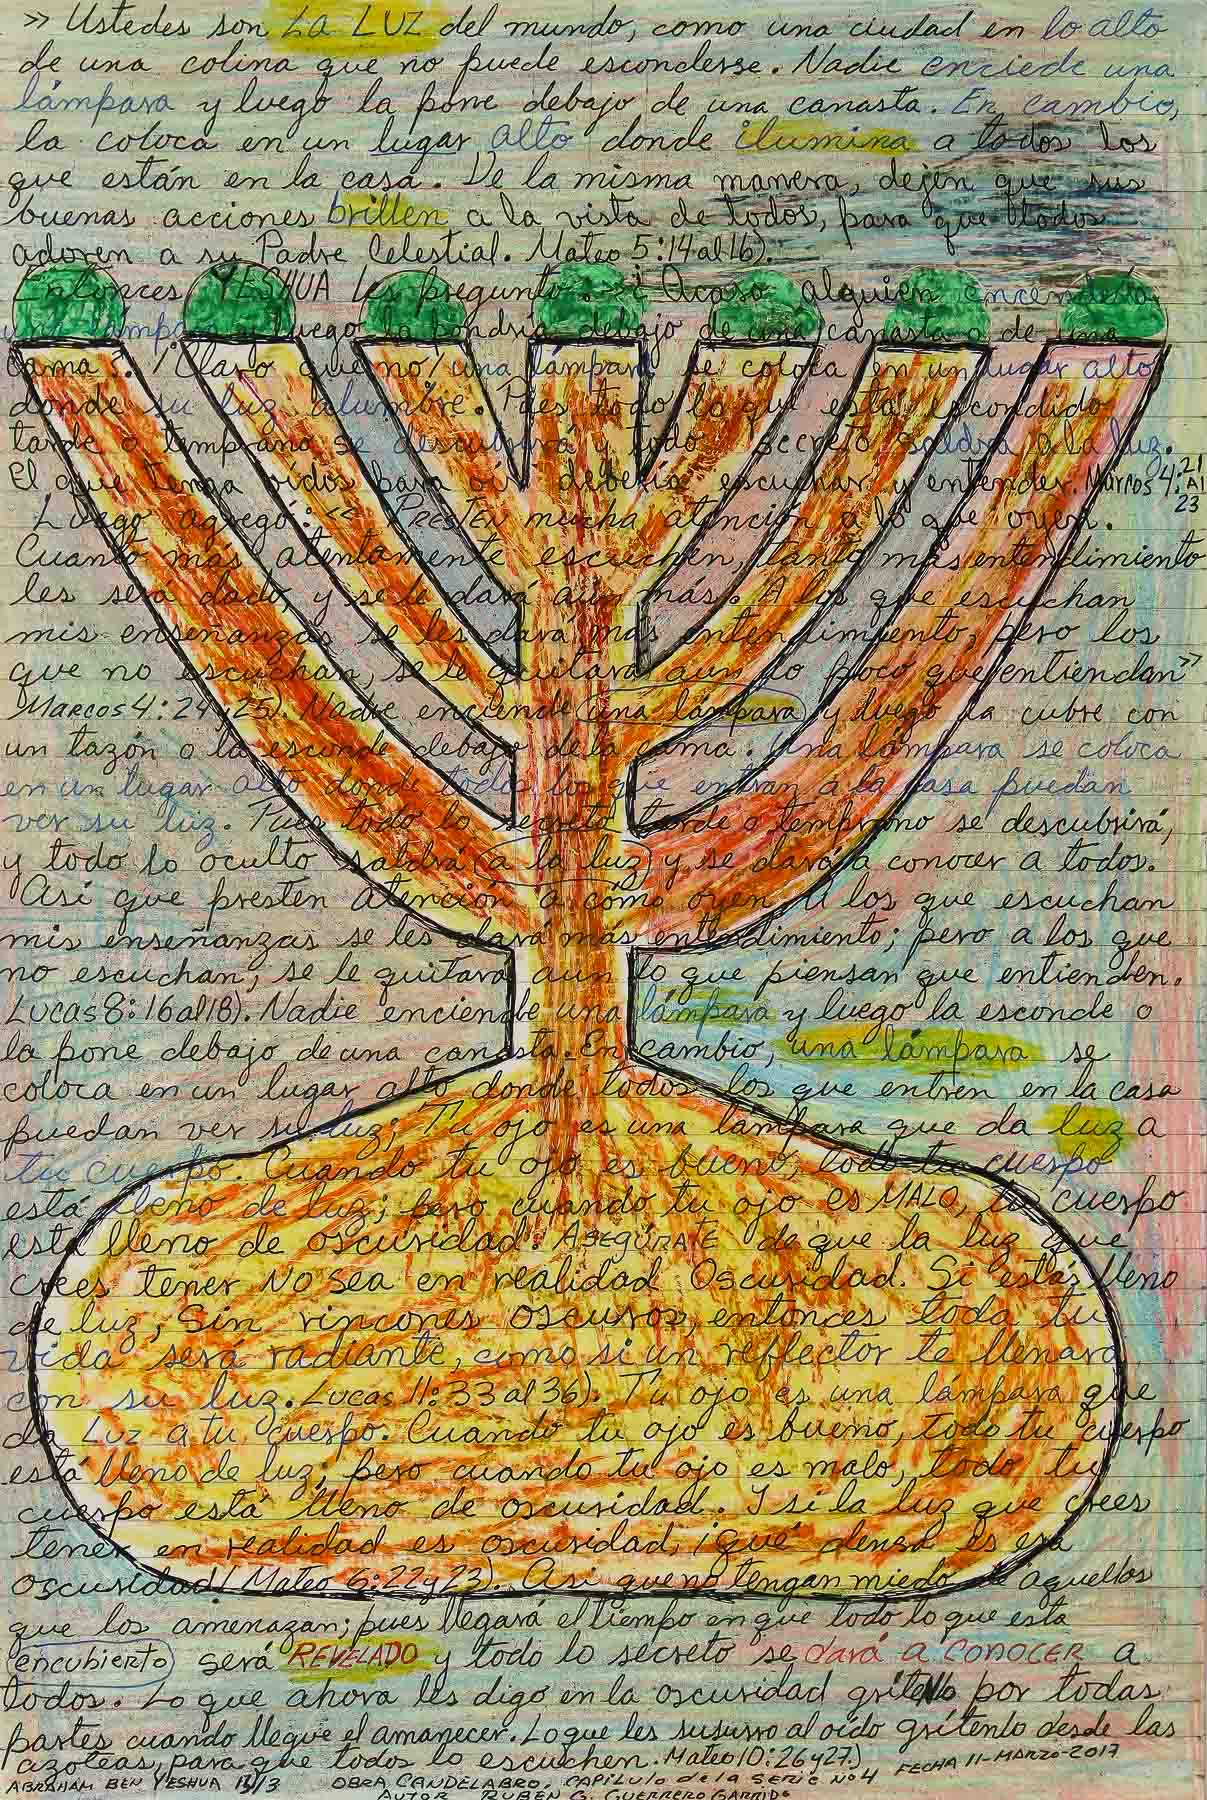 » Ustedes son LA LUZ del mundo, como una ciudad en lo alto
de una colina que no puede esconderse. Nadie enciede una
lámpara y luego la pone debajo de una canasta. En cambio,
la coloca en un lugar alto donde ilumina a todos los
que están en la casa. De la misma manera, dejen que sus
buenas acciones brillen a la vista de todos, para que todos
adoren a su Padre Celestial. Mateo 5:14 al 16).
Entonces YESHUA les pregunto: «¿Acaso alguien encendería
una lámpara y luego la pondría debajo de una canasta o de una
cama?. ¡Claro que no! una lámpara se coloca en un lugar alto
donde su luz alumbre. Pues todo lo que está escondido
tarde o temprano se descubrirá y todo secreto saldrá a la luz.
El que tenga oídos para oír debería escuchar y entender. Marcos 4:21 Al 23
Luego agregó: « PRESTEN mucha atención a lo que oyen.
Cuanto más atentamente escuchen, tanto más entendimiento
les será dado, y se le dará aún más. A los que escuchan
mis enseñanzas se les dará más entendimiento, pero los
que no escuchan, se le quitará aun lo poco que entiendan»
Marcos 4:24 y 25). Nadie enciende una lámpara y luego la cubre con
un tazón o la esconde debajo de la cama. Una lámpara se coloca
en un lugar alto donde todos los que entran a la casa puedan
ver su luz. Pues todo lo secreto tarde o temprano se descubrirá,
y todo lo oculto saldrá a la luz y se dará a conocer a todos.
Así que presten atención a cómo oyen. A los que escuchan
mis enseñanzas se les dará más entendimiento; pero a los que
no escuchan, se le quitará aun lo que piensan que entienden.
Lucas 8:16 al 18). Nadie enciende una lámpara y luego la esconde o
la pone debajo de una canasta. En cambio, una lámpara se
coloca en un lugar alto donde todos los que entren en la casa
puedan ver su luz; Tu ojo es una lámpara que da luz a
tu cuerpo. Cuando tu ojo es bueno, todo tu cuerpo
está lleno de luz; pero cuando tu ojo es MALO, tu cuerpo
está lleno de oscuridad. ASEGÚRATE de que la luz que
crees tener NO sea en realidad Oscuridad. Si estás lleno
de luz, Sin rincones oscuros, entonces toda tu
vida será radiante, como si un reflector te llenara
con su luz. Lucas 11:33 al 36). Tu ojo es una lámpara que
da Luz a tu cuerpo. Cuando tu ojo es bueno, todo tu cuerpo
está lleno de luz; pero cuando tu ojo es malo, todo tu
cuerpo está lleno de oscuridad. Y si la luz que crees
tener en realidad es oscuridad, ¡qué densa es esa
oscuridad! Mateo 6:22 y 23). Asi que no tengan miedo de aquellos
que los amenazan; pues llegará el tiempo en que todo lo que esta
encubierto será REVELADO y todo lo secreto se dará a CONOCER a
todos. Lo que ahora les digo en la oscuridad gritenlo por todas
partes cuando llegue el amanecer. Lo que les susurro al oído grítenlo desde las
azoteas, para que todos lo escuchen. Mateo 10:26 y 27.) FECHA 11-MARZO-2017
ABRAHAM BEN YESHUA OBRA CANDELABRO. CAPILULO de la SERIE No 4
AUTOR RUBEN G. GUERRERO GARRIDO